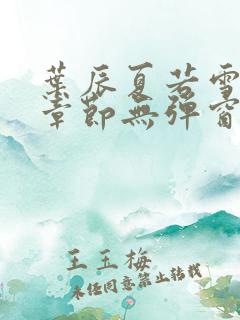 葉辰夏若雪
章節無彈窗
王玉梅
未經同意禁止轉載